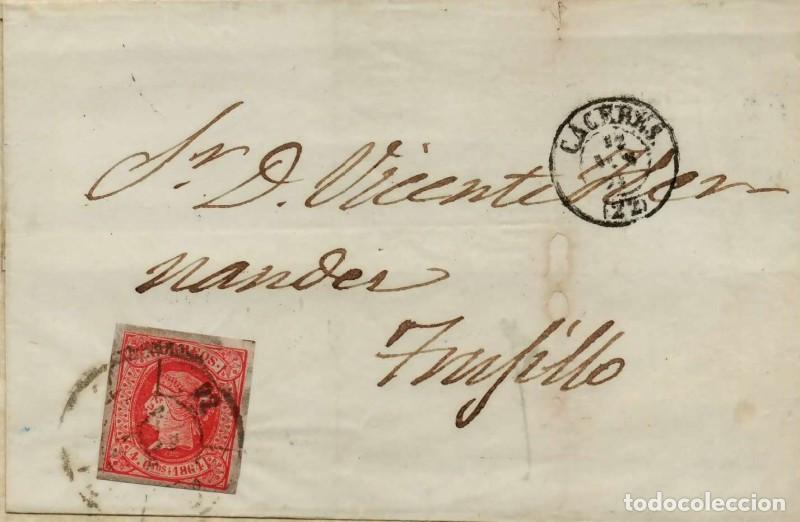 CACERES.
12
(22)
Sr. D. Vicente Her-
nandez
Trujillo
CORREOS
4. Cos 1864
todocoleccion
todocoleccion